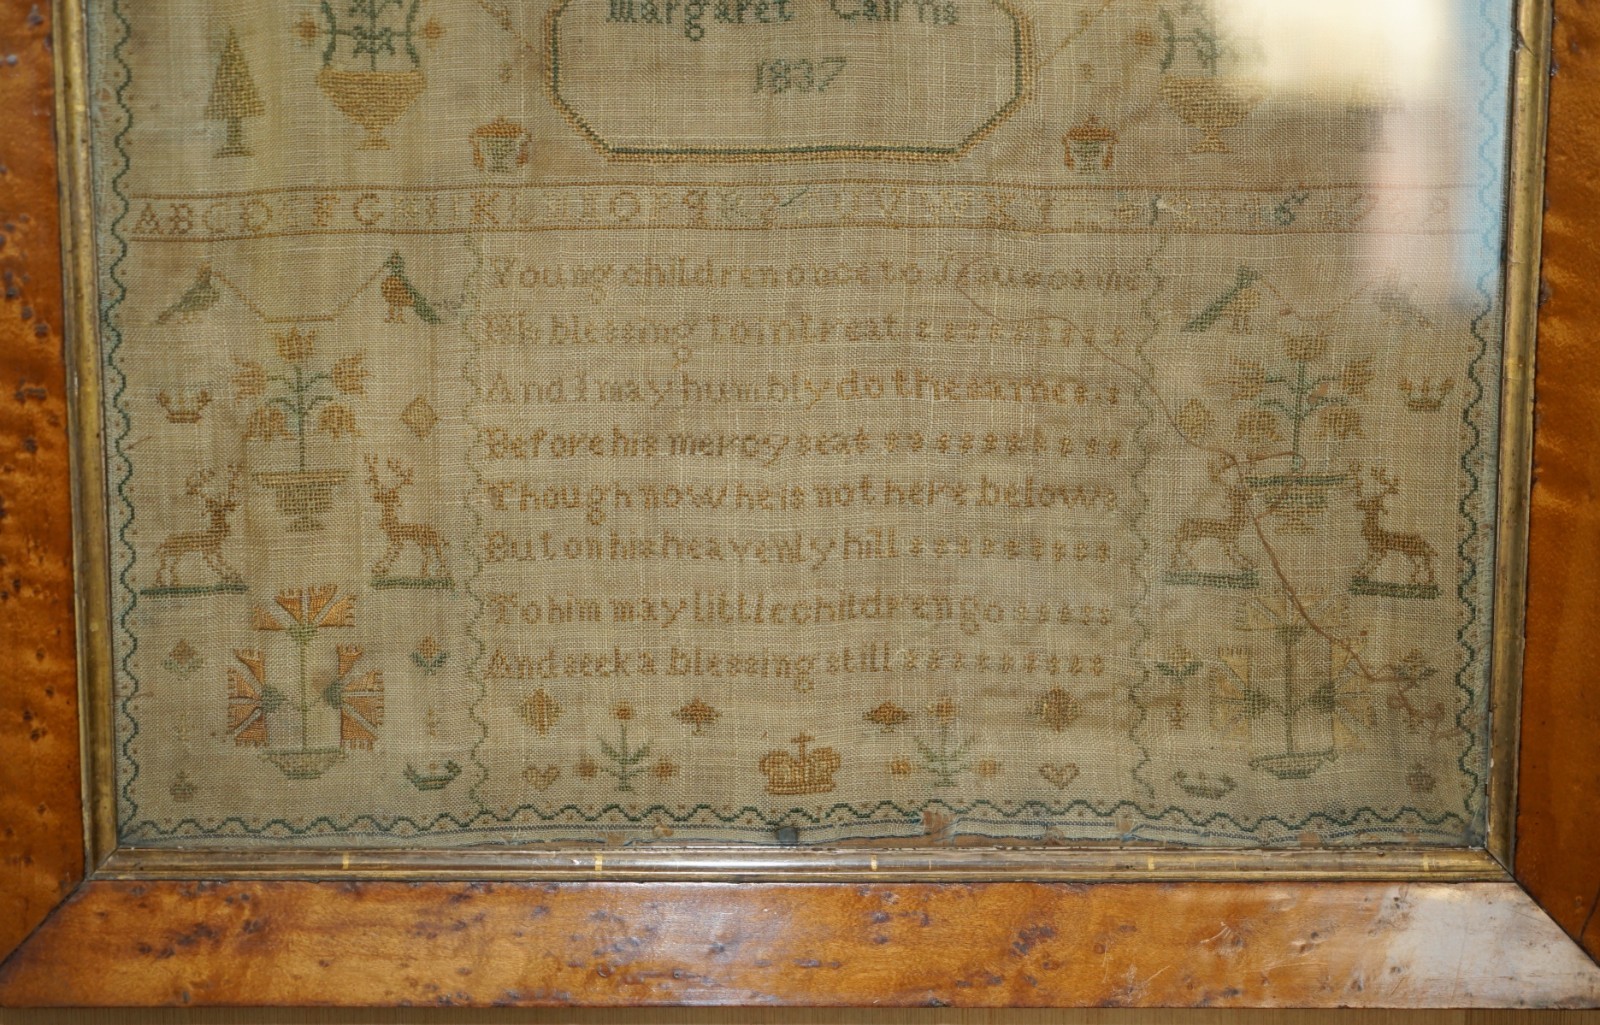 Margaret Cairns
1837
A B C D E F G H I K L M N O P Q R S T U V W X Y
Young children once to Jesus came
His blessing to intreat
And I may humbly do the same
Before his mercy seat
Though now he is not here below
But on his heavenly hill
To him may little children go
And seek a blessing still